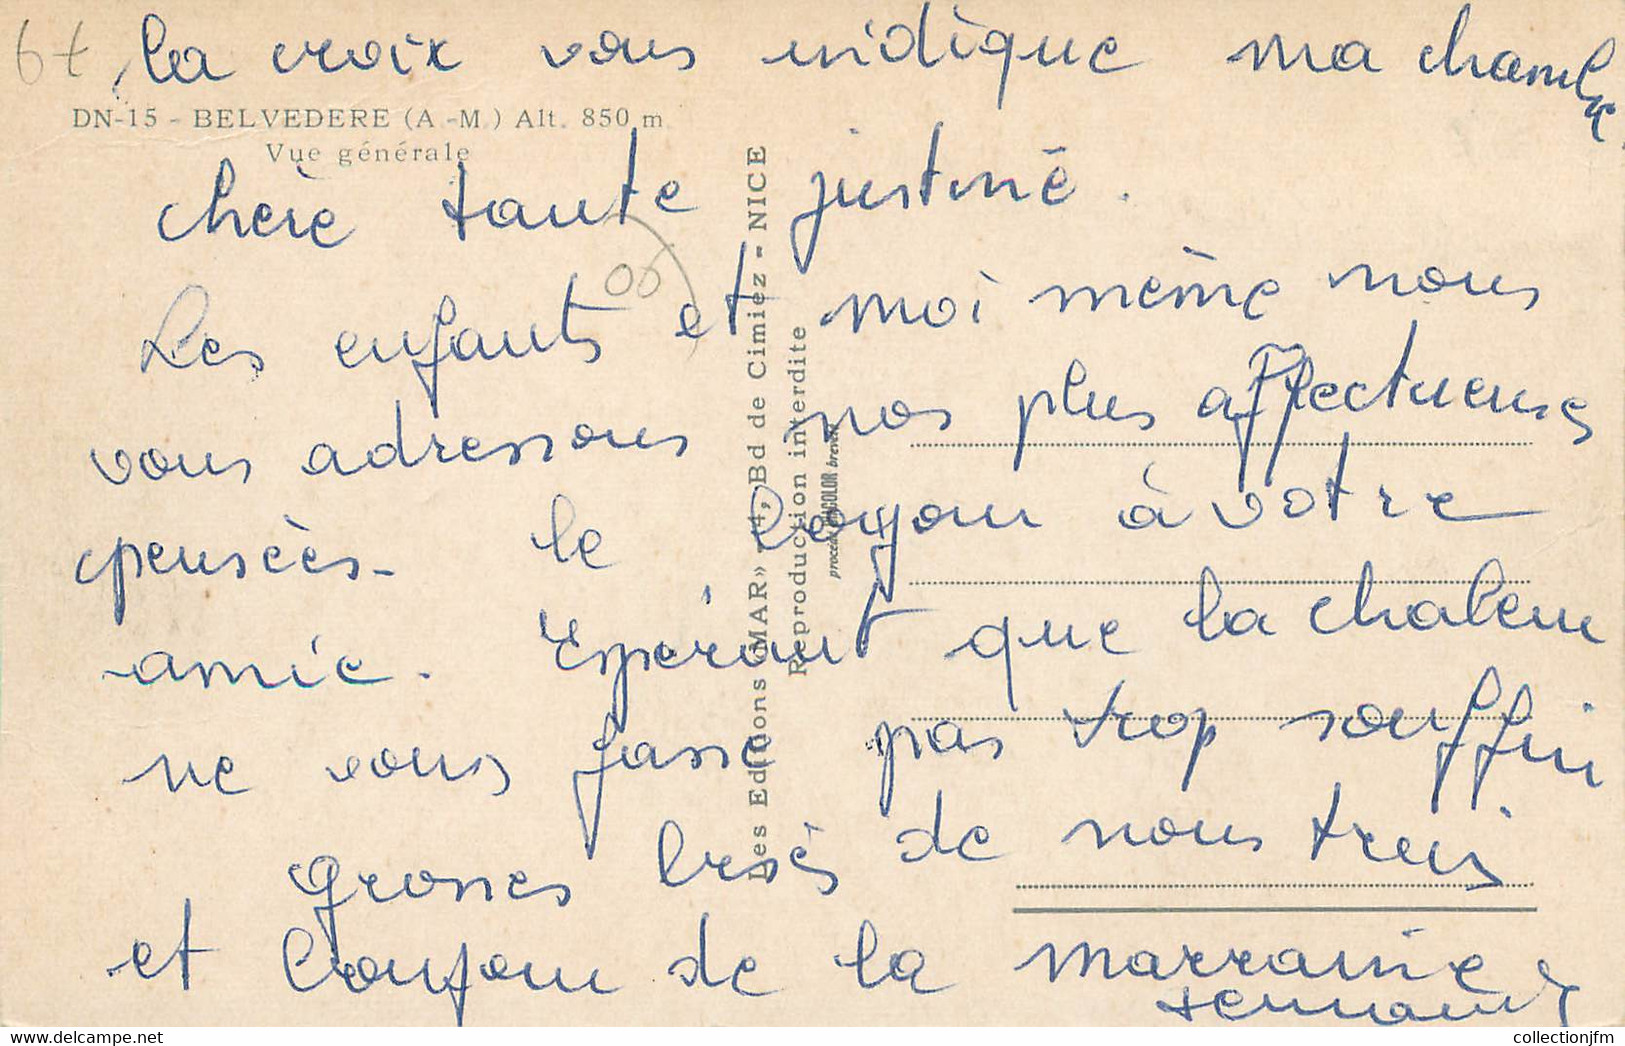 6f
la croix vous indique ma chambre
DN-15 - BELVEDERE (A.-M.) Alt. 850 m
Vue générale
chère tante justine.
06
Les enfants et moi même nous
vous adressons nos plus affectueuses
pensées. le à votre
amie. Espérant que la chaleur
ne vous fasse pas trop souffrir
grosses bises de nous trois
et bonjour de la marraine
Les Editions «MAR» - 4, Bd de Cimiez - NICE
Reproduction interdite
procédé brevet
collectionjfm